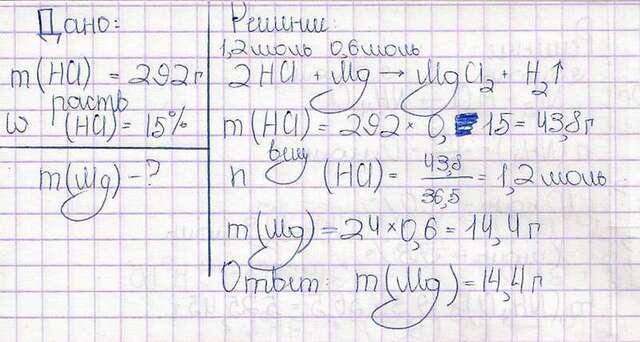 Дано:
m(HCl) = 292г
раств
ω (HCl) = 15%
m(Mg) - ?
Решение:
1,2моль 0,6моль
2HCl + Mg → MgCl₂ + H₂↑
m(HCl) = 292 × 0,15 = 43,8г
вещ
n (HCl) = 43,8/36,5 = 1,2 моль
m(Mg) = 24 × 0,6 = 14,4 г
Ответ: m(Mg) = 14,4г